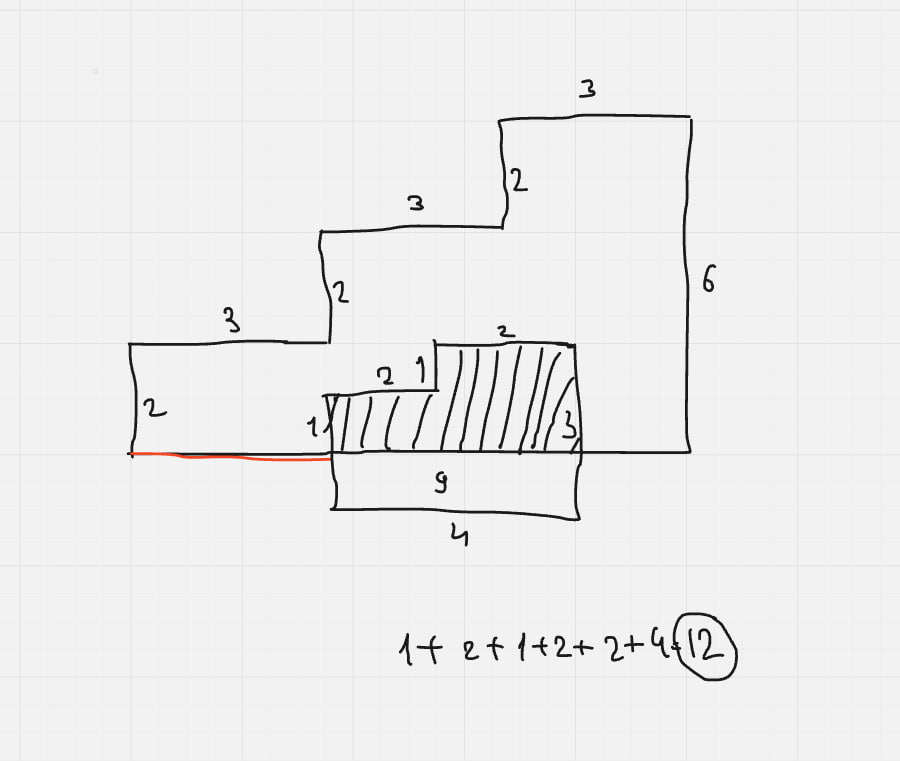 3
2
3
2
6
3
2
2
2
1
1
3
9
4
1+ 2+ 1+2+ 2+4=12